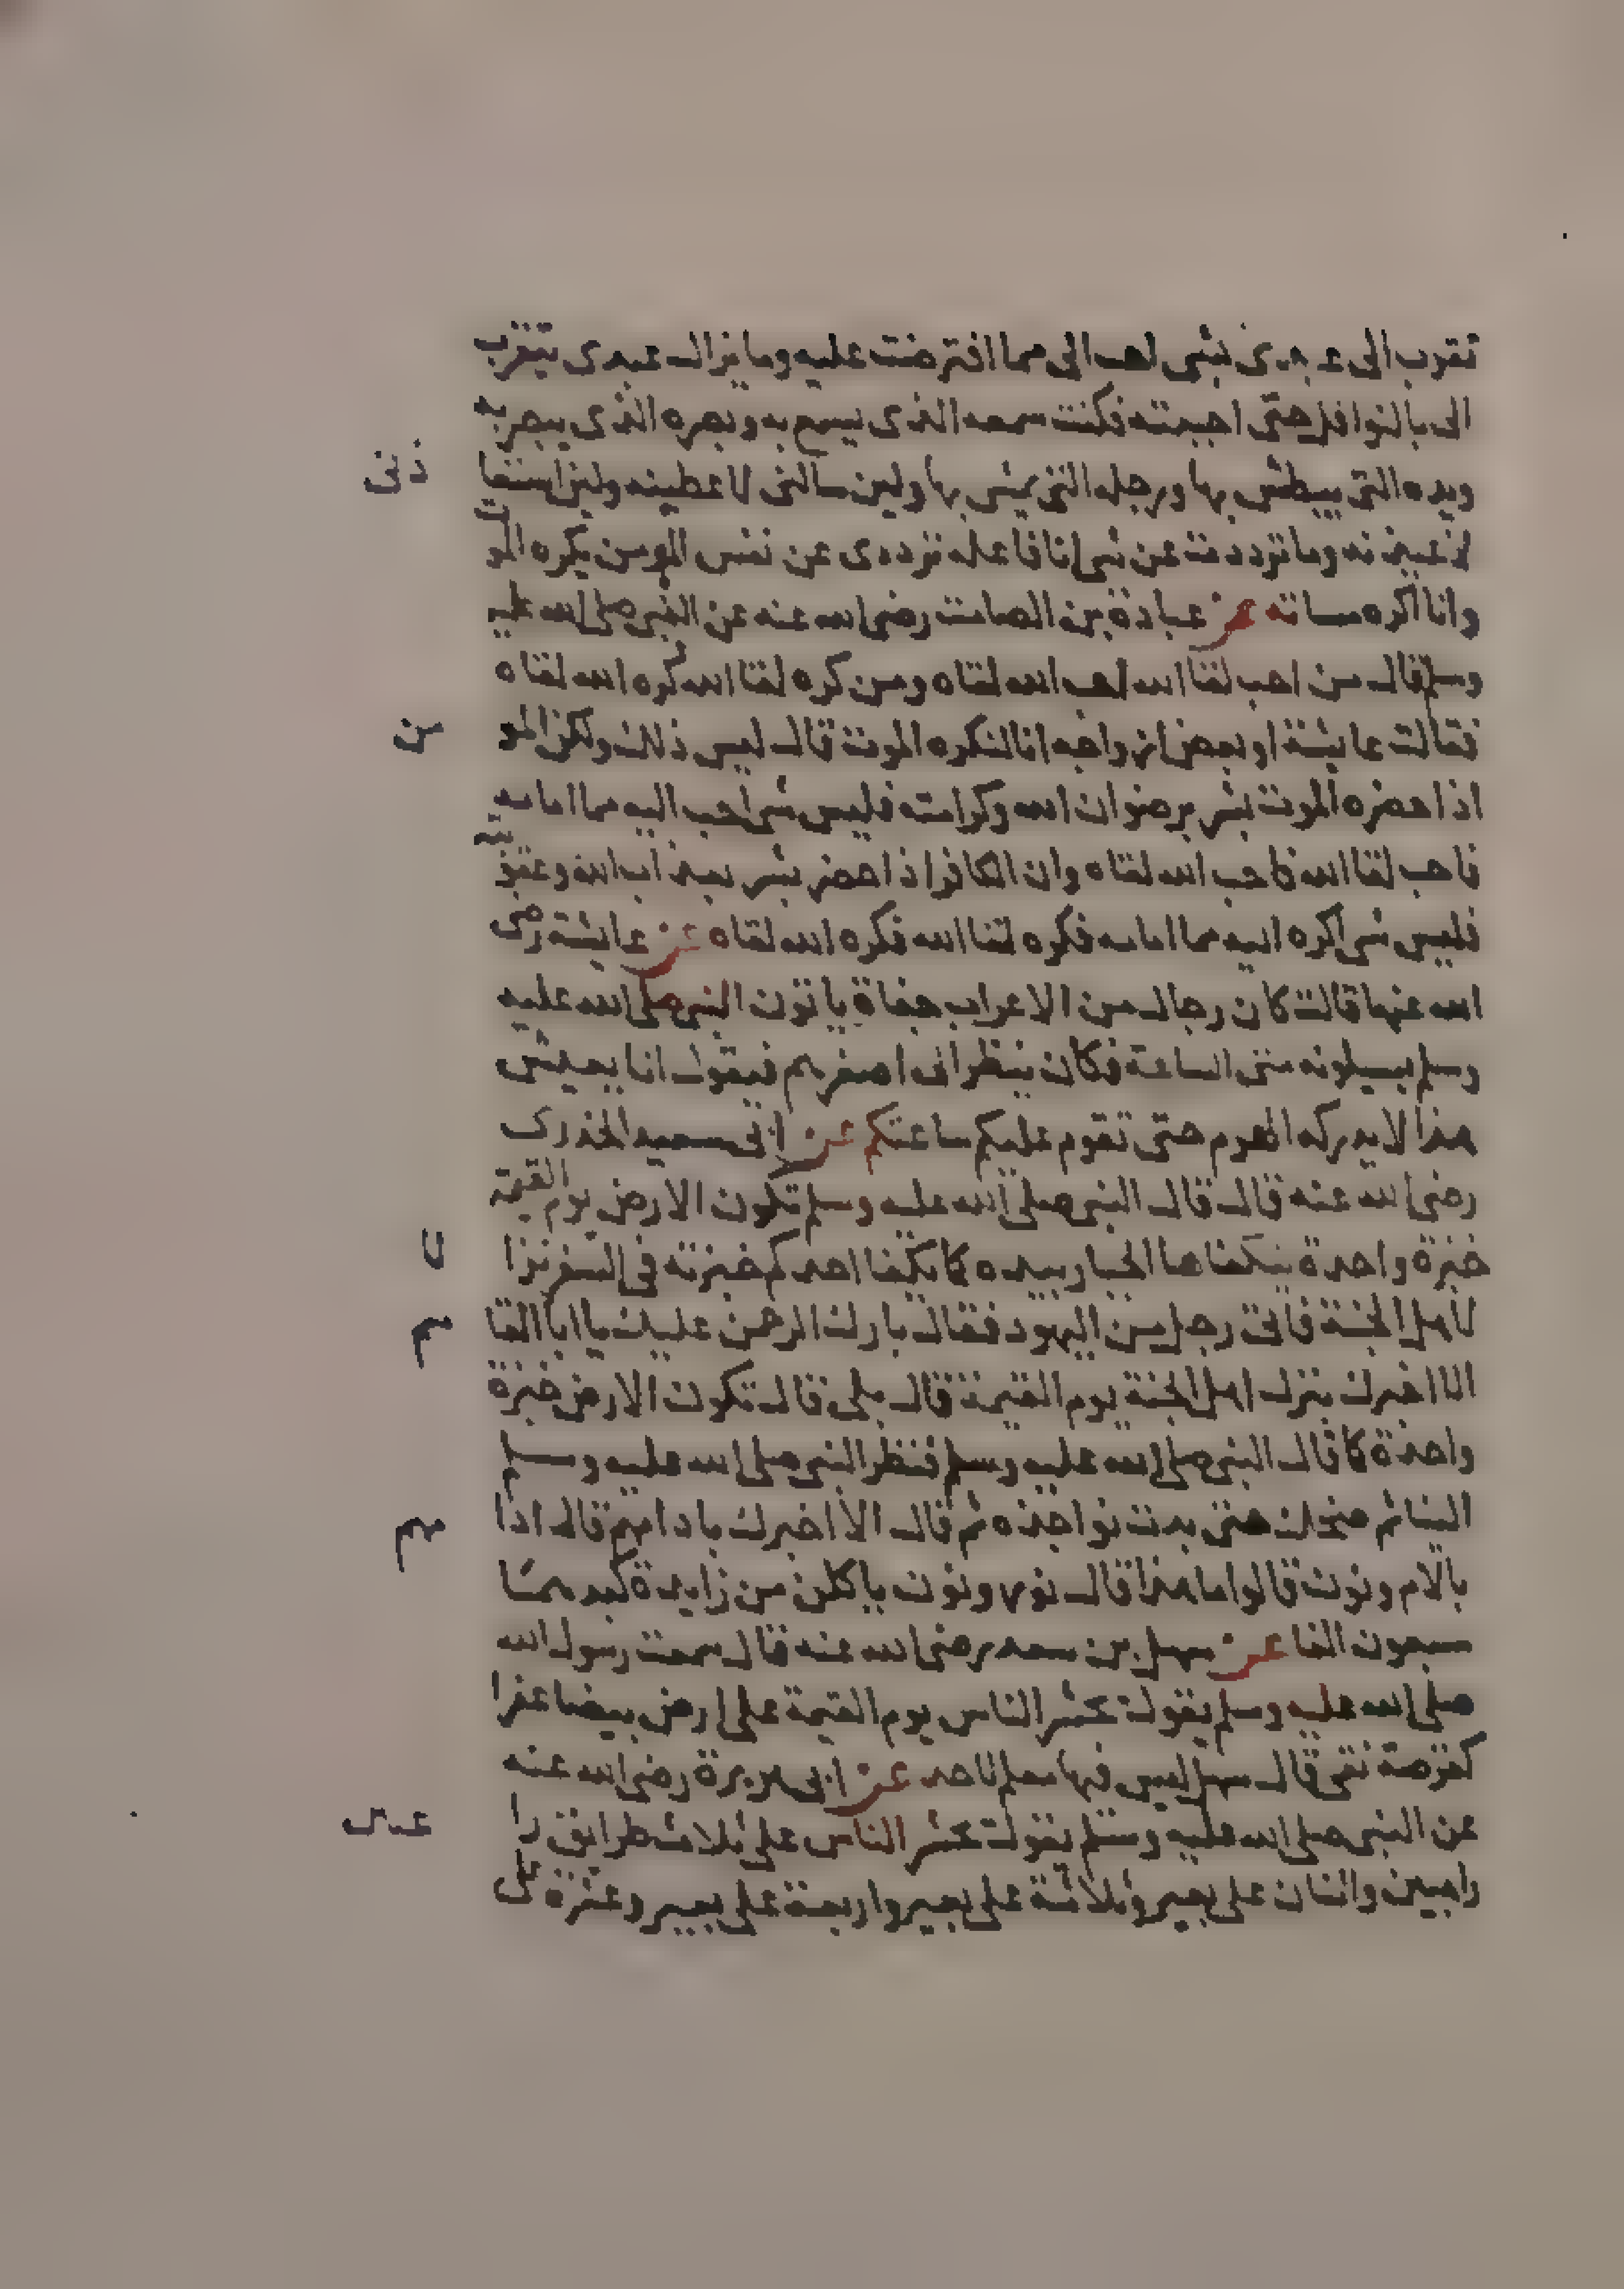 تقرب الى عبدى بشى احب الى مما افترضت عليه وما يزال عبدى يتقرب
الى بالنوافل حتى احببته فكنت سمعه الذى يسمع به وبصره الذى يبصر به
ويده التى يبطش بها ورجله التى يمشى بها ولين سالنى لاعطينه ولين استعا
ذنى
لاعيذنه وما ترددت عن شى انا فاعله ترددى عن نفس المومن يكره الموت
وانا اكره مساته عن عبادة بن الصامت رضى الله عنه عن النبى صلى الله عليه
وسلم قال من احب لقا الله احب الله لقاه ومن كره لقا الله كره الله لقاه
فقالت عايشة او بعض ازواجه انا لنكره الموت قال ليس ذلك ولكن المو
من
اذا حضره الموت بشر برضوان الله وكرامته فليس شى احب اليه مما امامه
فاحب لقا الله فاحب الله لقاه وان الكافر اذا حضر بشر بعذاب الله وعقوبته
فليس شى اكره اليه مما امامه فكره لقا الله فكره الله لقاه عن عايشة رضى
الله عنها قالت كان رجال من الاعراب جفاة ياتون النبى صلى الله عليه
وسلم يسيلونه متى الساعة فكان ينظر الى اصغرهم فيقول ان يعيش
هذا لا يدركه الهرم حتى تقوم عليكم ساعتكم عن ابى سعيد الخدرى
رضى الله عنه قال قال النبى صلى الله عليه وسلم تكون الارض يوم القيمة
خبزة واحدة يتكفاها الجبار بيده كما يكفا احدكم خبزته فى السفر نزا
لا
لاهل الجنة فاتى رجل من اليهود فقال بارك الرحمن عليك يا ابا القا
سم
الا اخبرك بنزل اهل الجنة يوم القيمة قال بلى قال تكون الارض خبزة
واحدة كما قال النبى صلى الله عليه وسلم فنظر النبى صلى الله عليه وسلم
الينا ثم ضحك حتى بدت نواجذه ثم قال الا اخبرك بادامهم قال ادا
مهم
بالام ونون قالوا ما هذا قال ثور ونون ياكل من زايدة كبدهما
سبعون الفا عن سهل بن سعد رضى الله عنه قال سمعت رسول الله
صلى الله عليه وسلم يقول يحشر الناس يوم القيمة على ارض بيضا عفرا
كقرصة نقى قال سهل ليس فيها معلم لاحد عن ابى هريرة رضى الله عنه
عن النبى صلى الله عليه وسلم يقول يحشر الناس على ثلاث طرايق را
غبين
راهبين واثنان على بعير وثلاثة على بعير واربعة على بعير وعشرة على